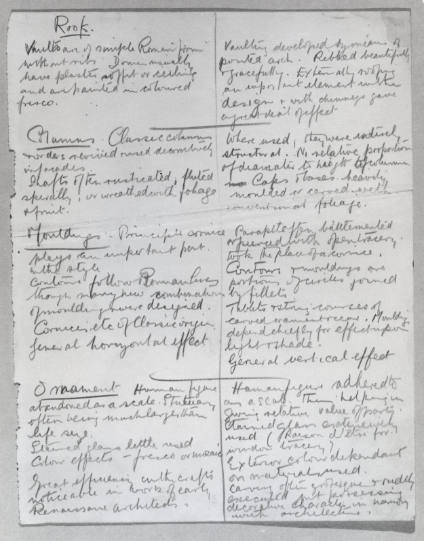 Roofs.
Vaults are of simple Roman form
without ribs. Domes usually
have plaster soffit or ceiling
and are painted in coloured
fresco.
Vaulting developed by means of
pointed arch. Ribbed beautifully
gracefully. Externally roofs
an important element in the
design & with chimneys gave
a great deal of effect
Columns Classic columns
orders revived & used decoratively
in facades.
Shafts often rusticated, fluted
spirally, or wreathed with foliage
& fruit.
Where used, they were entirely
structural. No relative proportion
of diameter to height of column
Caps & bases heavily
moulded or carved with
conventional foliage.
Mouldings. Principle cornice
plays an important part.
in the style
Contours follow Roman lines
though many new combinations
of mouldings were designed.
Cornices etc of Classic origin
General horizontal effect
Parapet often battlemented
or pierced with open tracery.
took the place of a cornice.
Contours & mouldings are
portions of circles joined
by fillets
carved
depend chiefly for effect upon
light & shade.
General vertical effect
Ornament Human figure
abandoned as a scale. Statuary
often being much larger than
life size.
Stained glass little used
Colour effects - fresco or mosaic
Great efficiency in the crafts
noticeable in work of early
Renaissance architects.
Human figure adhered to
as a scale. Thus helping in
giving relative value of parts.
Stained glass extensively
used (Raison d'etre for
window tracery)
Exterior colour dependant
on materials used.
Carving often grotesque & rudely
executed but possessing
decorative character in
with architecture.